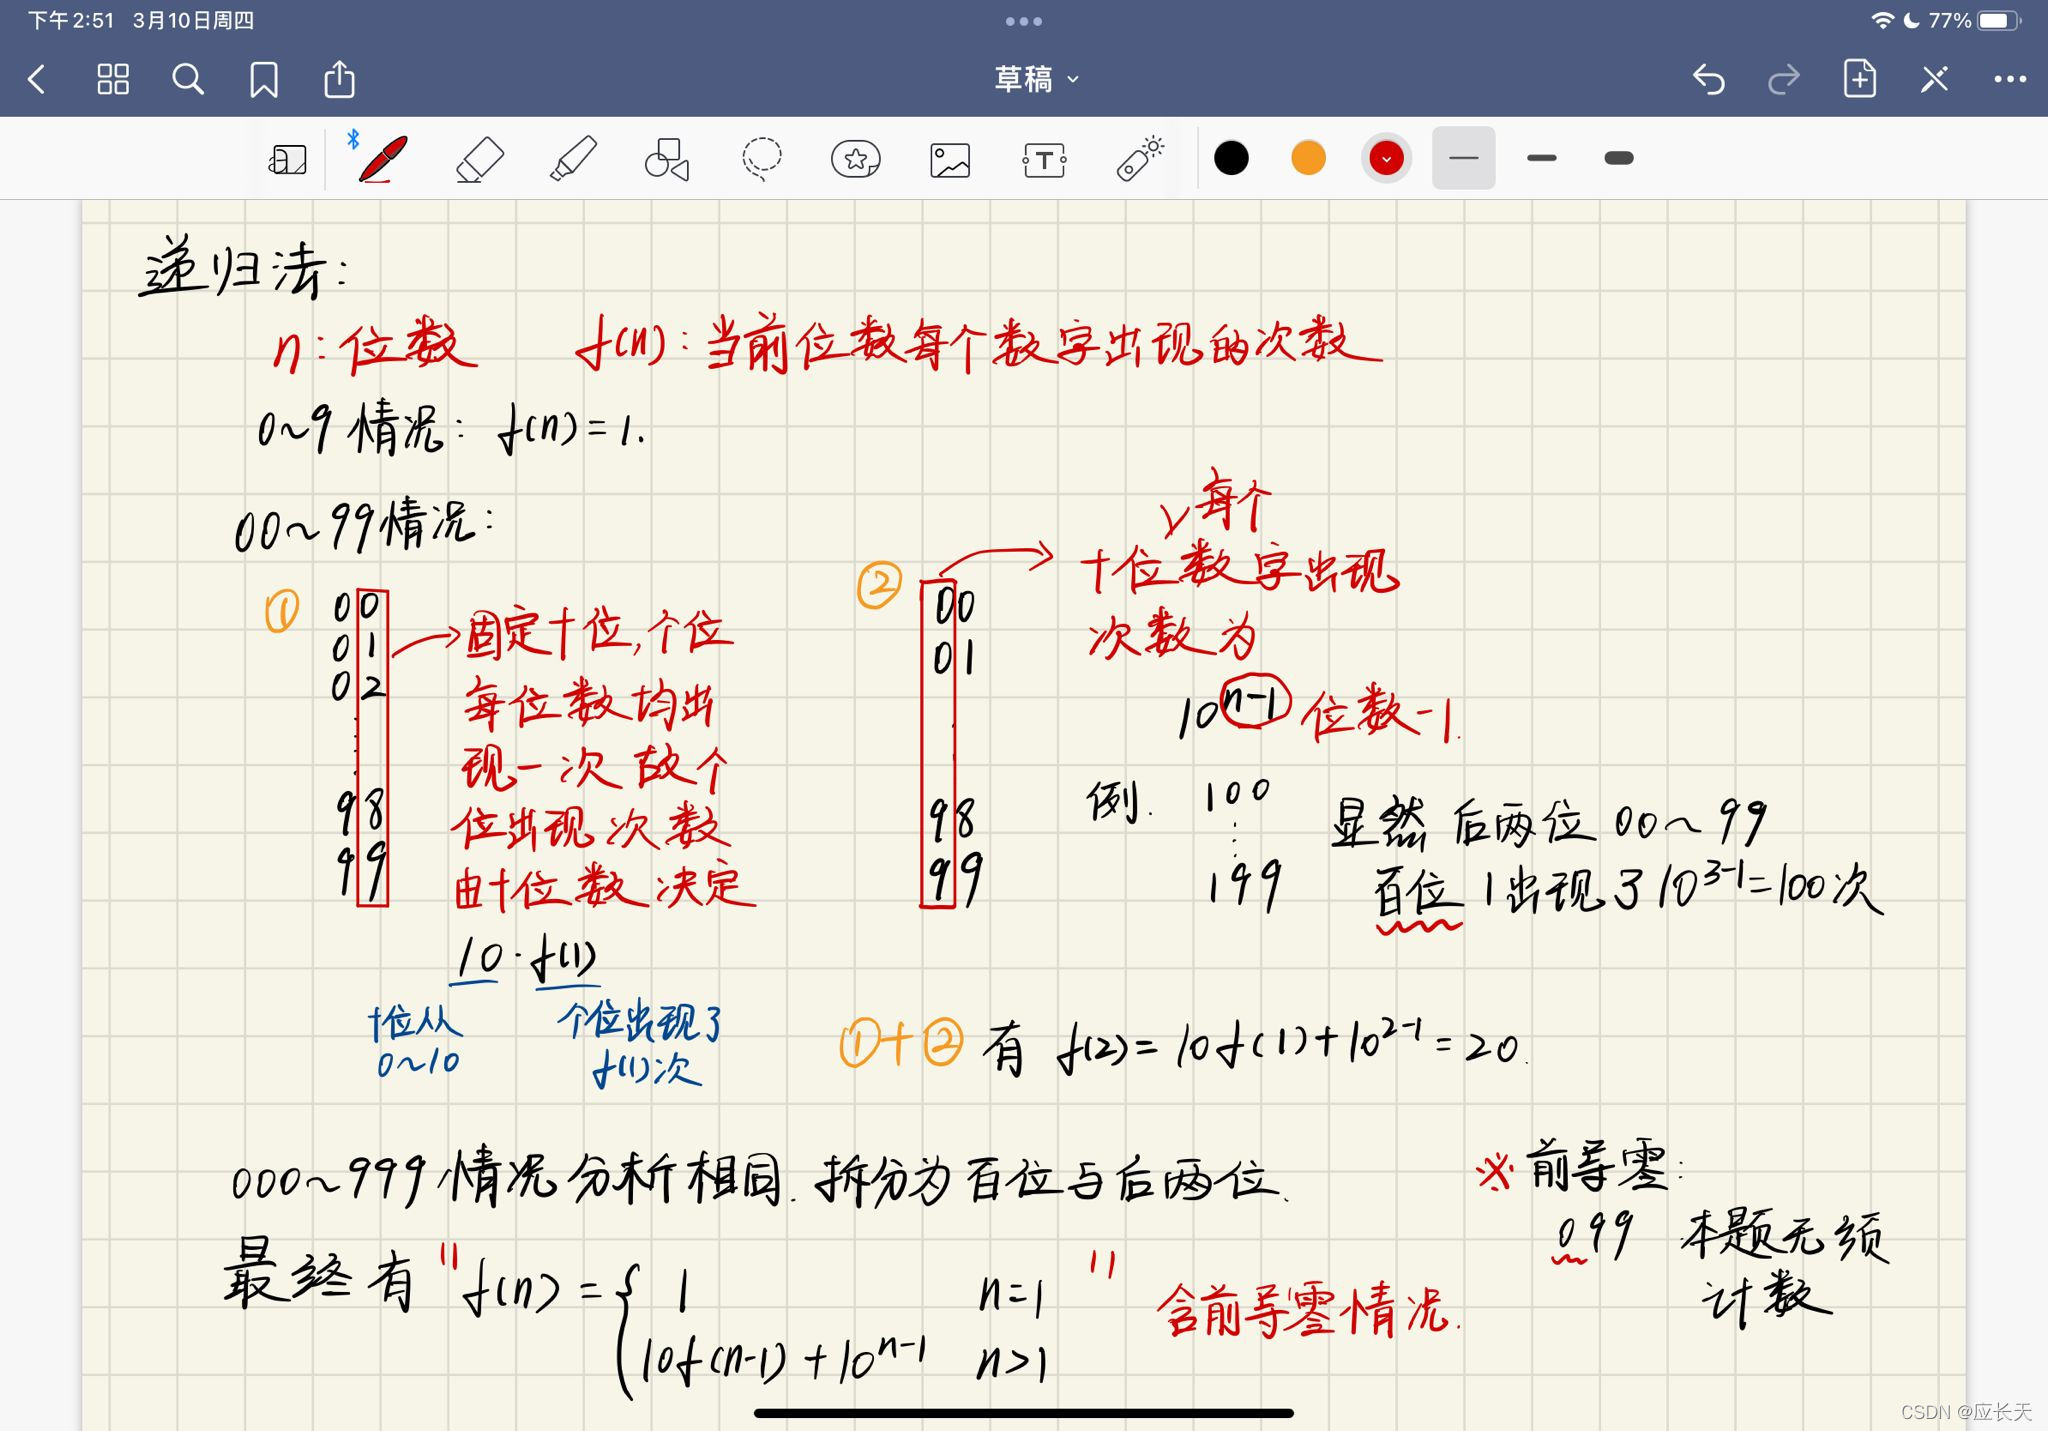 下午2:51 3月10日周四
77%
草稿
递归法:
n:位数 f(n):当前位数每个数字出现的次数
0~9情况: f(n)=1.
00~99情况:
①
00
01
02
98
99
固定十位,个位
每位数均出
现一次 故个
位出现次数
由十位数决定
10·f(1)
十位从
0~10
个位出现了
f(1)次
②
00
01
98
99
每个
十位数字出现
次数为
10^{n-1} 位数-1.
例. 100
199
显然 后两位 00~99
百位 1出现了10^{3-1}=100次
①+② 有 f(2)=10f(1)+10^{2-1}=20.
000~999情况分析相同. 拆分为百位与后两位.
最终有 " f(n)={ 1 n=1 "
10f(n-1)+10^{n-1} n>1
含前导零情况.
※前导零:
099 本题无须
计数
CSDN @应长天